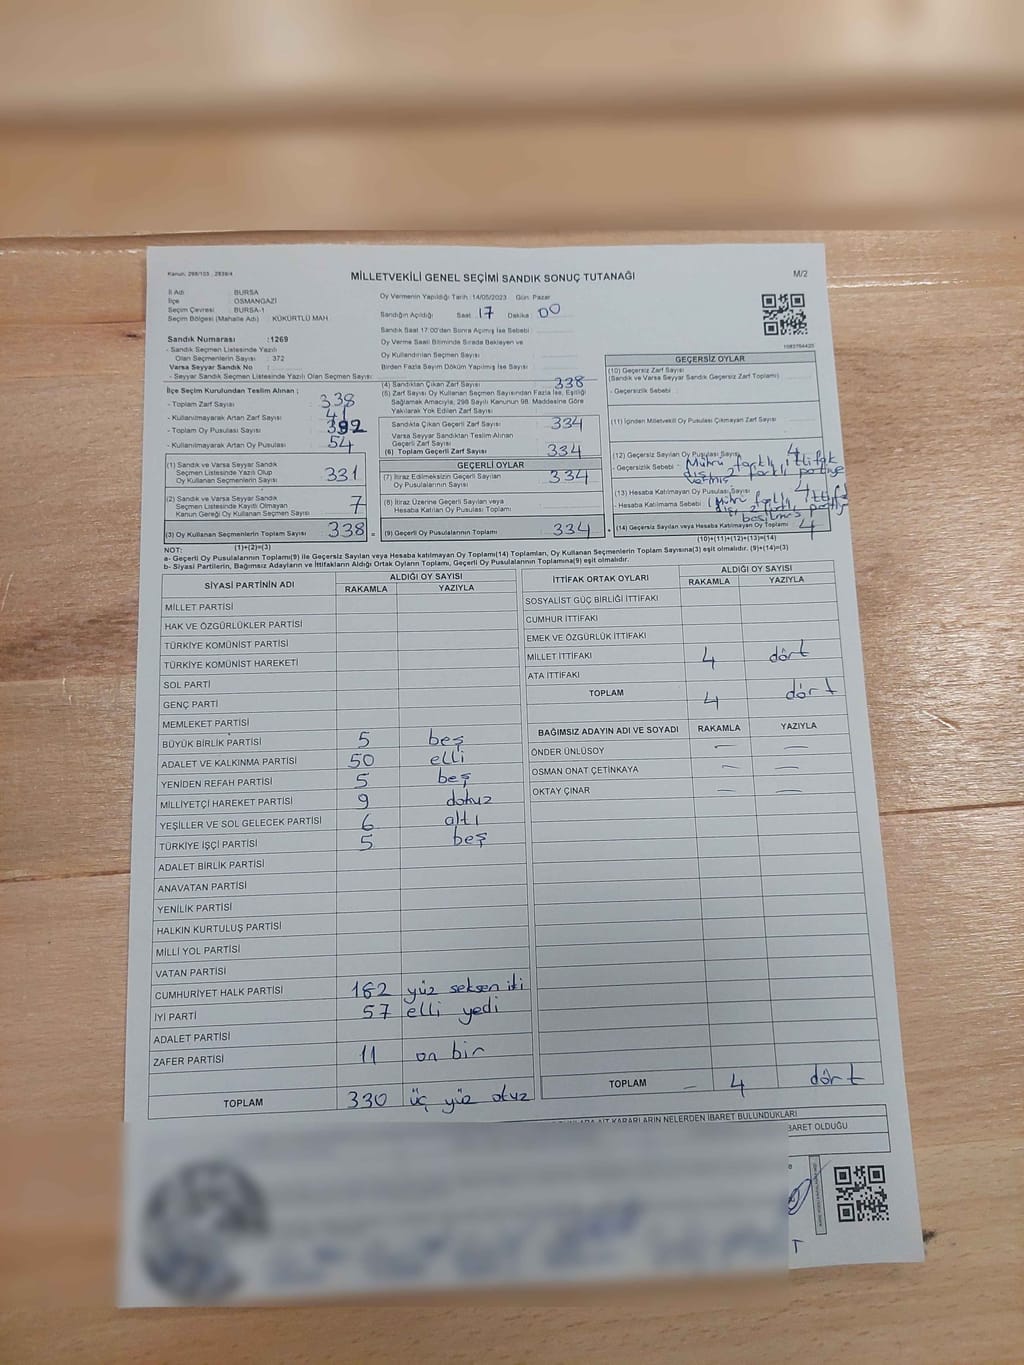 Kanun: 298/105 , 2839/4
MİLLETVEKİLİ GENEL SEÇİMİ SANDIK SONUÇ TUTANAĞI
M/2
İl Adı : BURSA
İlçe : OSMANGAZİ
Seçim Çevresi : BURSA-1
Seçim Bölgesi (Mahalle Adı) : KÜKÜRTLÜ MAH.
Sandık Numarası :1269
- Sandık Seçmen Listesinde Yazılı
Olan Seçmenlerin Sayısı : 372
Varsa Seyyar Sandık No :
- Seyyar Sandık Seçmen Listesinde Yazılı Olan Seçmen Sayısı:
Oy Vermenin Yapıldığı Tarih :14/05/2023 Gün: Pazar
Sandığın Açıldığı Saat : 17 Dakika : 00
Sandık Saat 17:00'den Sonra Açımış İse Sebebi :
Oy Verme Saati Bitiminde Sırada Bekleyen ve
Oy Kullandırılan Seçmen Sayısı :
Birden Fazla Sayım Döküm Yapılmış İse Sayısı :
İlçe Seçim Kurulundan Teslim Alınan ;
- Toplam Zarf Sayısı : 338
- Kullanılmayarak Artan Zarf Sayısı : 41
- Toplam Oy Pusulası Sayısı :
- Kullanılmayarak Artan Oy Pusulası : 54
(1) Sandık ve Varsa Seyyar Sandık
Seçmen Listesinde Yazılı Olup
Oy Kullanan Seçmen Sayısı 331
(2) Sandık ve Varsa Seyyar Sandık
Seçmen Listesinde Kayıtlı Olmayan
Kanun Gereği Oy Kullanan Seçmen Sayısı 7
(3) Oy Kullanan Seçmenlerin Toplam Sayısı 338
(1)+(2)=(3)
(4) Sandıktan Çıkan Zarf Sayısı 338
(5) Zarf Sayısı Oy Kullanan Seçmen Sayısından Fazla İse, Eşitliği
Sağlamak Amacıyla, 298 Sayılı Kanunun 98. Maddesine Göre
Yakılarak Yok Edilen Zarf Sayısı
Sandıkta Çıkan Geçerli Zarf Sayısı 334
Varsa Seyyar Sandıktan Teslim Alınan
Geçerli Zarf Sayısı
(6) Toplam Geçerli Zarf Sayısı 334
GEÇERLİ OYLAR
(7) İtiraz Edilmeksizin Geçerli Sayılan
Oy Pusulalarının Sayısı 334
(8) İtiraz Üzerine Geçerli Sayılan veya
Hesaba Katılan Oy Pusulası Toplamı
(9) Geçerli Oy Pusulalarının Toplamı 334
GEÇERSİZ OYLAR
(10) Geçersiz Zarf Sayısı
(Sandık ve Varsa Seyyar Sandık Geçersiz Zarf Toplamı)
- Geçersizlik Sebebi :
(11) İçinden Milletvekili Oy Pusulası Çıkmayan Zarf Sayısı
(12) Geçersiz Sayılan Oy Pusulası Sayısı 4
- Geçersizlik Sebebi : Mührü farklı, ittifak
dışı 2 farklı partiye
vermiş
(13) Hesaba Katılmayan Oy Pusulası Sayısı 4
- Hesaba Katılmama Sebebi :
(14) Geçersiz Sayılan veya Hesaba Katılmayan Oy Toplamı 4
(10)+(11)+(12)+(13)=(14)
NOT:
a- Geçerli Oy Pusulalarının Toplamı(9) ile Geçersiz Sayılan veya Hesaba katılmayan Oy Toplamı(14) Toplamları, Oy Kullanan Seçmenlerin Toplam Sayısına(3) eşit olmalıdır. (9)+(14)=(3)
b- Siyasi Partilerin, Bağımsız Adayların ve İttifakların Aldığı Ortak Oyların Toplamı, Geçerli Oy Pusulalarının Toplamına(9) eşit olmalıdır.
SİYASİ PARTİNİN ADI
ALDIĞI OY SAYISI
RAKAMLA YAZIYLA
MİLLET PARTİSİ
HAK VE ÖZGÜRLÜKLER PARTİSİ
TÜRKİYE KOMÜNİST PARTİSİ
TÜRKİYE KOMÜNİST HAREKETİ
SOL PARTİ
GENÇ PARTİ
MEMLEKET PARTİSİ
BÜYÜK BİRLİK PARTİSİ 5 beş
ADALET VE KALKINMA PARTİSİ 50 elli
YENİDEN REFAH PARTİSİ 5 beş
MİLLİYETÇİ HAREKET PARTİSİ 9 dokuz
YEŞİLLER VE SOL GELECEK PARTİSİ 6 altı
TÜRKİYE İŞÇİ PARTİSİ 5 beş
ADALET BİRLİK PARTİSİ
ANAVATAN PARTİSİ
YENİLİK PARTİSİ
HALKIN KURTULUŞ PARTİSİ
MİLLİ YOL PARTİSİ
VATAN PARTİSİ
CUMHURİYET HALK PARTİSİ 182 yüz seksen iki
İYİ PARTİ 57 elli yedi
ADALET PARTİSİ
ZAFER PARTİSİ 11 on bir
TOPLAM 330 üç yüz otuz
İTTİFAK ORTAK OYLARI
ALDIĞI OY SAYISI
RAKAMLA YAZIYLA
SOSYALİST GÜÇ BİRLİĞİ İTTİFAKI
CUMHUR İTTİFAKI
EMEK VE ÖZGÜRLÜK İTTİFAKI
MİLLET İTTİFAKI 4 dört
ATA İTTİFAKI
TOPLAM 4 dört
BAĞIMSIZ ADAYIN ADI VE SOYADI RAKAMLA YAZIYLA
ÖNDER ÜNLÜSOY — —
OSMAN ONAT ÇETİNKAYA — —
OKTAY ÇINAR — —
TOPLAM — 4 dört
KARARLARIN NELERDEN İBARET BULUNDUKLARI
İBARET OLDUĞU